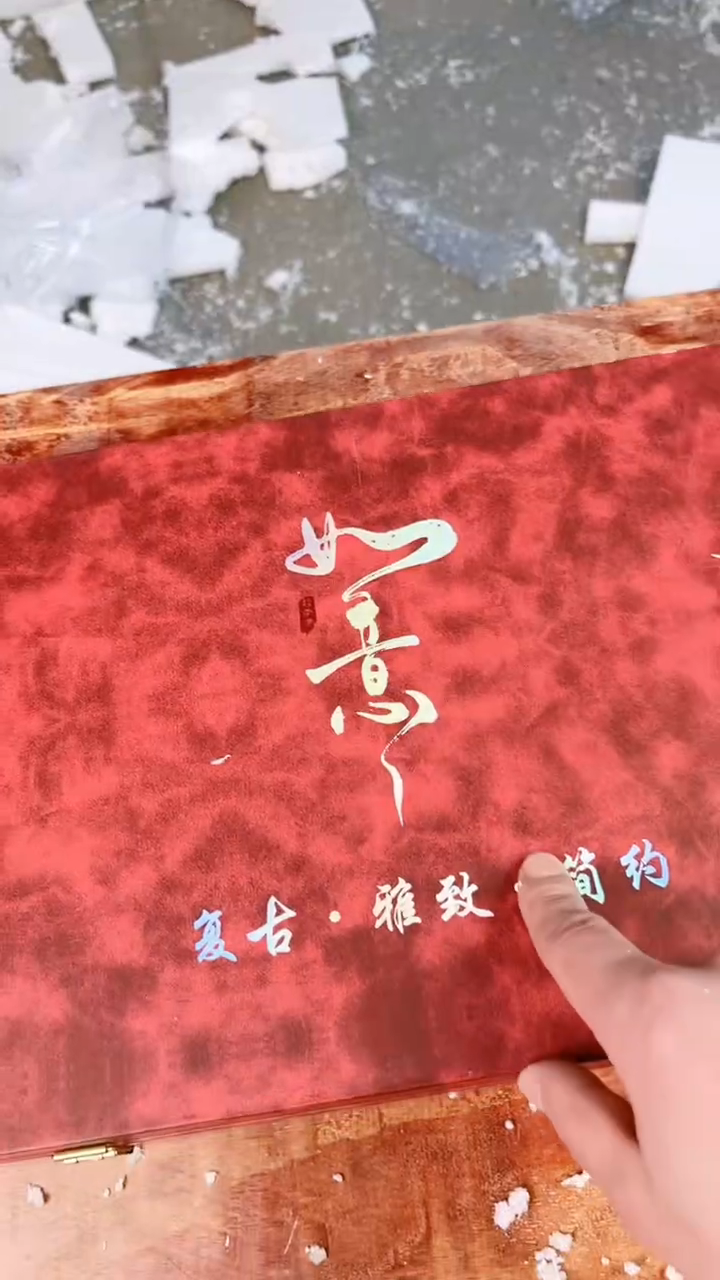 如意
复古·雅致·简约